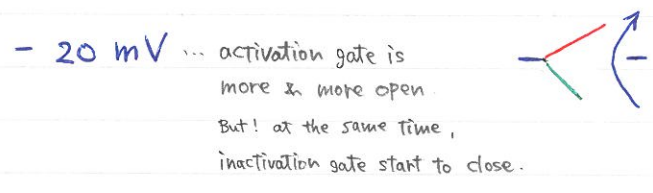 - 20 mV ... activation gate is
more & more open
But! at the same time,
inactivation gate start to close.